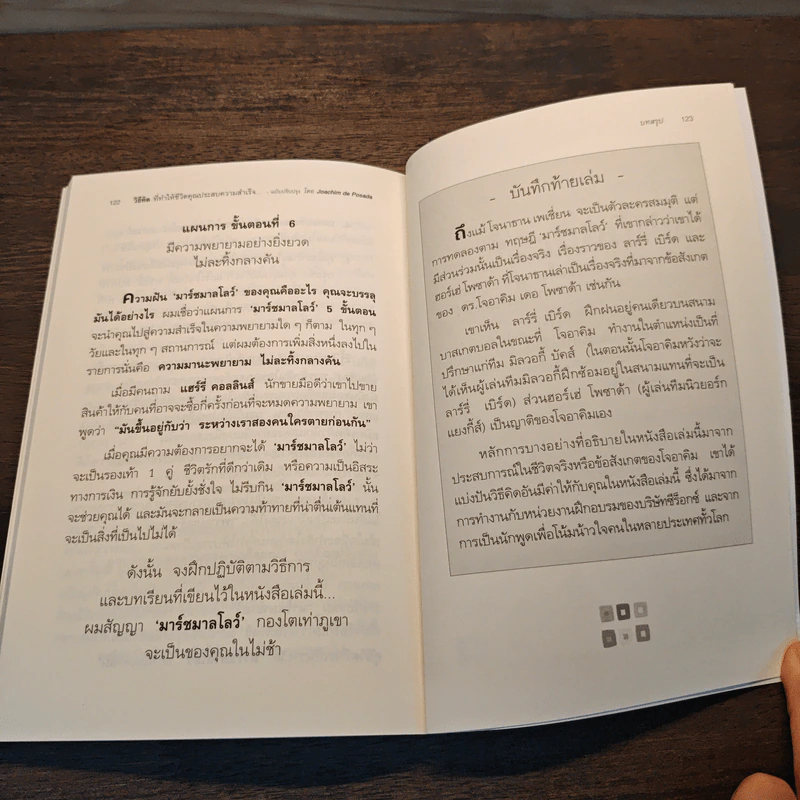 122 วิธีคิด ที่ทำให้ชีวิตคุณประสบความสำเร็จ... - ฉบับปรับปรุง โดย Joachim de Posada
แผนการ ขั้นตอนที่ 6
มีความพยายามอย่างยิ่งยวด
ไม่ละทิ้งกลางคัน
ความฝัน 'มาร์ชมาลโลว์' ของคุณคืออะไร คุณจะบรรลุ
มันได้อย่างไร ผมเชื่อว่าแผนการ 'มาร์ชมาลโลว์' 5 ขั้นตอน
จะนำคุณไปสู่ความสำเร็จในความพยายามใด ๆ ก็ตาม ในทุก ๆ
วัยและในทุก ๆ สถานการณ์ แต่ผมต้องการเพิ่มสิ่งหนึ่งลงไปใน
รายการนั่นคือ ความมานะพยายาม ไม่ละทิ้งกลางคัน
เมื่อมีคนถาม แฮร์รี่ คอลลินส์ นักขายมือดีว่าเขาไปขาย
สินค้าให้กับคนที่อาจจะซื้อกี่ครั้งก่อนที่จะหมดความพยายาม เขา
พูดว่า "มันขึ้นอยู่กับว่า ระหว่างเราสองคนใครตายก่อนกัน"
เมื่อคุณมีความต้องการอยากจะได้ 'มาร์ชมาลโลว์' ไม่ว่า
จะเป็นรองเท้า 1 คู่ ชีวิตรักที่ดีกว่าเดิม หรือความเป็นอิสระ
ทางการเงิน การรู้จักยับยั้งชั่งใจ ไม่รีบกิน 'มาร์ชมาลโลว์' นั้น
จะช่วยคุณได้ และมันจะกลายเป็นความท้าทายที่น่าตื่นเต้นแทนที่
จะเป็นสิ่งที่เป็นไปไม่ได้
ดังนั้น จงฝึกปฏิบัติตามวิธีการ
และบทเรียนที่เขียนไว้ในหนังสือเล่มนี้...
ผมสัญญา 'มาร์ชมาลโลว์' กองโตเท่าภูเขา
จะเป็นของคุณในไม่ช้า
บทสรุป 123
- บันทึกท้ายเล่ม -
ถึงแม้ โจนาธาน เพเชี่ยน จะเป็นตัวละครสมมุติ แต่
การทดลองตาม ทฤษฎี 'มาร์ชมาลโลว์' ที่เขากล่าวว่าเขาได้
มีส่วนร่วมนั้นเป็นเรื่องจริง เรื่องราวของ ลาร์รี่ เบิร์ด และ
ฮอร์เฮ่ โพซาด้า ที่โจนาธานเล่าเป็นเรื่องจริงที่มาจากข้อสังเกต
ของ ดร.โจอาคิม เดอ โพซาด้า เช่นกัน
เขาเห็น ลาร์รี่ เบิร์ด ฝึกฝนอยู่คนเดียวบนสนาม
บาสเกตบอลในขณะที่ โจอาคิม ทำงานในตำแหน่งเป็นที่
ปรึกษาแก่ทีม มิลวอกี้ บัคส์ (ในตอนนั้นโจอาคิมหวังว่าจะ
ได้เห็นผู้เล่นทีมมิลวอกี้ฝึกซ้อมอยู่ในสนามแทนที่จะเป็น
ลาร์รี่ เบิร์ด) ส่วนฮอร์เฮ่ โพซาด้า (ผู้เล่นทีมนิวยอร์ก
แยงกี้ส์) เป็นญาติของโจอาคิมเอง
หลักการบางอย่างที่อธิบายในหนังสือเล่มนี้มาจาก
ประสบการณ์ในชีวิตจริงหรือข้อสังเกตของโจอาคิม เขาได้
แบ่งปันวิธีคิดอันมีค่าให้กับคุณในหนังสือเล่มนี้ ซึ่งได้มาจาก
การทำงานกับหน่วยงานฝึกอบรมของบริษัทซีร็อกซ์ และจาก
การเป็นนักพูดเพื่อโน้มน้าวใจคนในหลายประเทศทั่วโลก